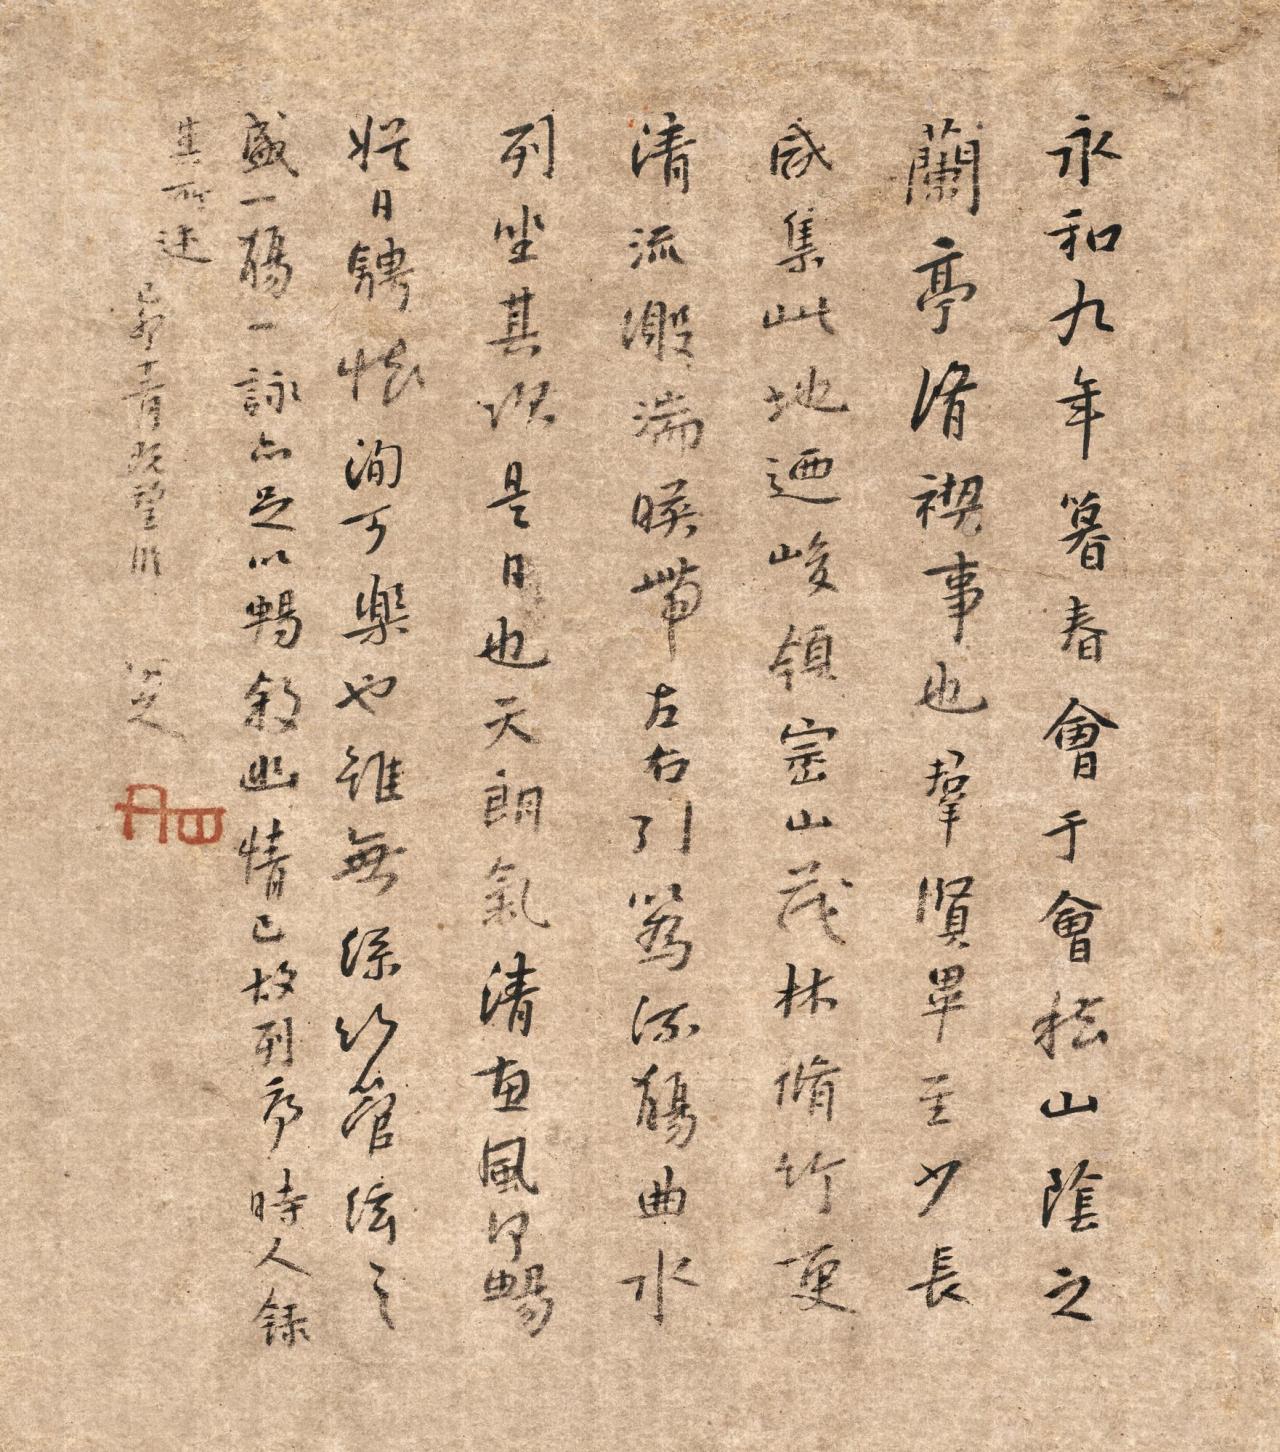 永和九年暮春會于會稽山陰之
蘭亭脩禊事也群賢畢至少長
咸集此地迺峻領崇山茂林脩竹更
清流激湍暎帶左右引以為流觴曲水
列坐其次是日也天朗氣清惠風和暢
娛目騁懷洵可樂也雖無絲竹管絃之
盛一觴一詠亦足以暢敘幽情已故列序時人錄
其所述
己卯十一月既望臨
八大